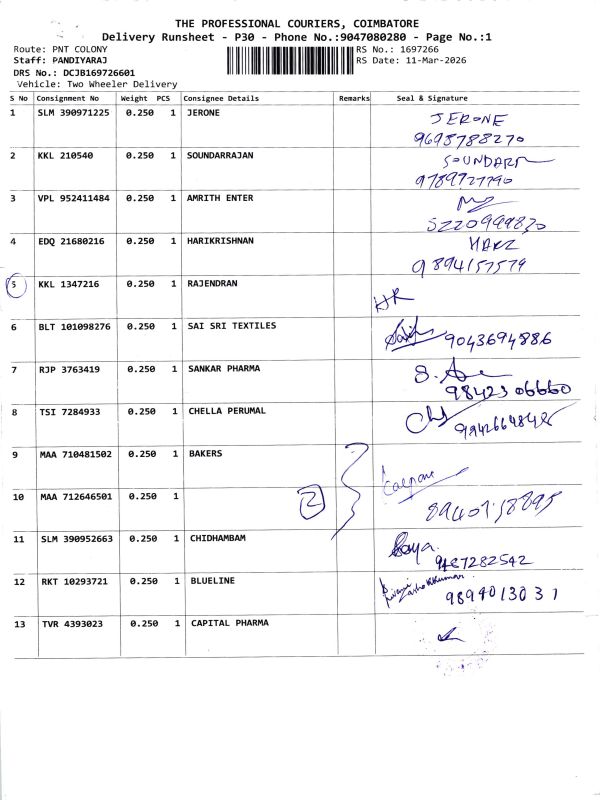 THE PROFESSIONAL COURIERS, COIMBATORE
Delivery Runsheet - P30 - Phone No.:9047080280 - Page No.:1
Route: PNT COLONY RS No.: 1697266
Staff: PANDIYARAJ RS Date: 11-Mar-2026
DRS No.: DCJB169726601
Vehicle: Two Wheeler Delivery
S No Consignment No Weight PCS Consignee Details Remarks Seal & Signature
1 SLM 390971225 0.250 1 JERONE JERONE
9695788270
2 KKL 210540 0.250 1 SOUNDARRAJAN
9789727790
3 VPL 952411484 0.250 1 AMRITH ENTER
5220999830
4 EDQ 21680216 0.250 1 HARIKRISHNAN HARZ
9894157579
5 KKL 1347216 0.250 1 RAJENDRAN
6 BLT 101098276 0.250 1 SAI SRI TEXTILES 9043694886
7 RJP 3763419 0.250 1 SANKAR PHARMA
9842306660
8 TSI 7284933 0.250 1 CHELLA PERUMAL
9 MAA 710481502 0.250 1 BAKERS
10 MAA 712646501 0.250 1 2
11 SLM 390952663 0.250 1 CHIDHAMBAM
9487282542
12 RKT 10293721 0.250 1 BLUELINE 9894013031
13 TVR 4393023 0.250 1 CAPITAL PHARMA